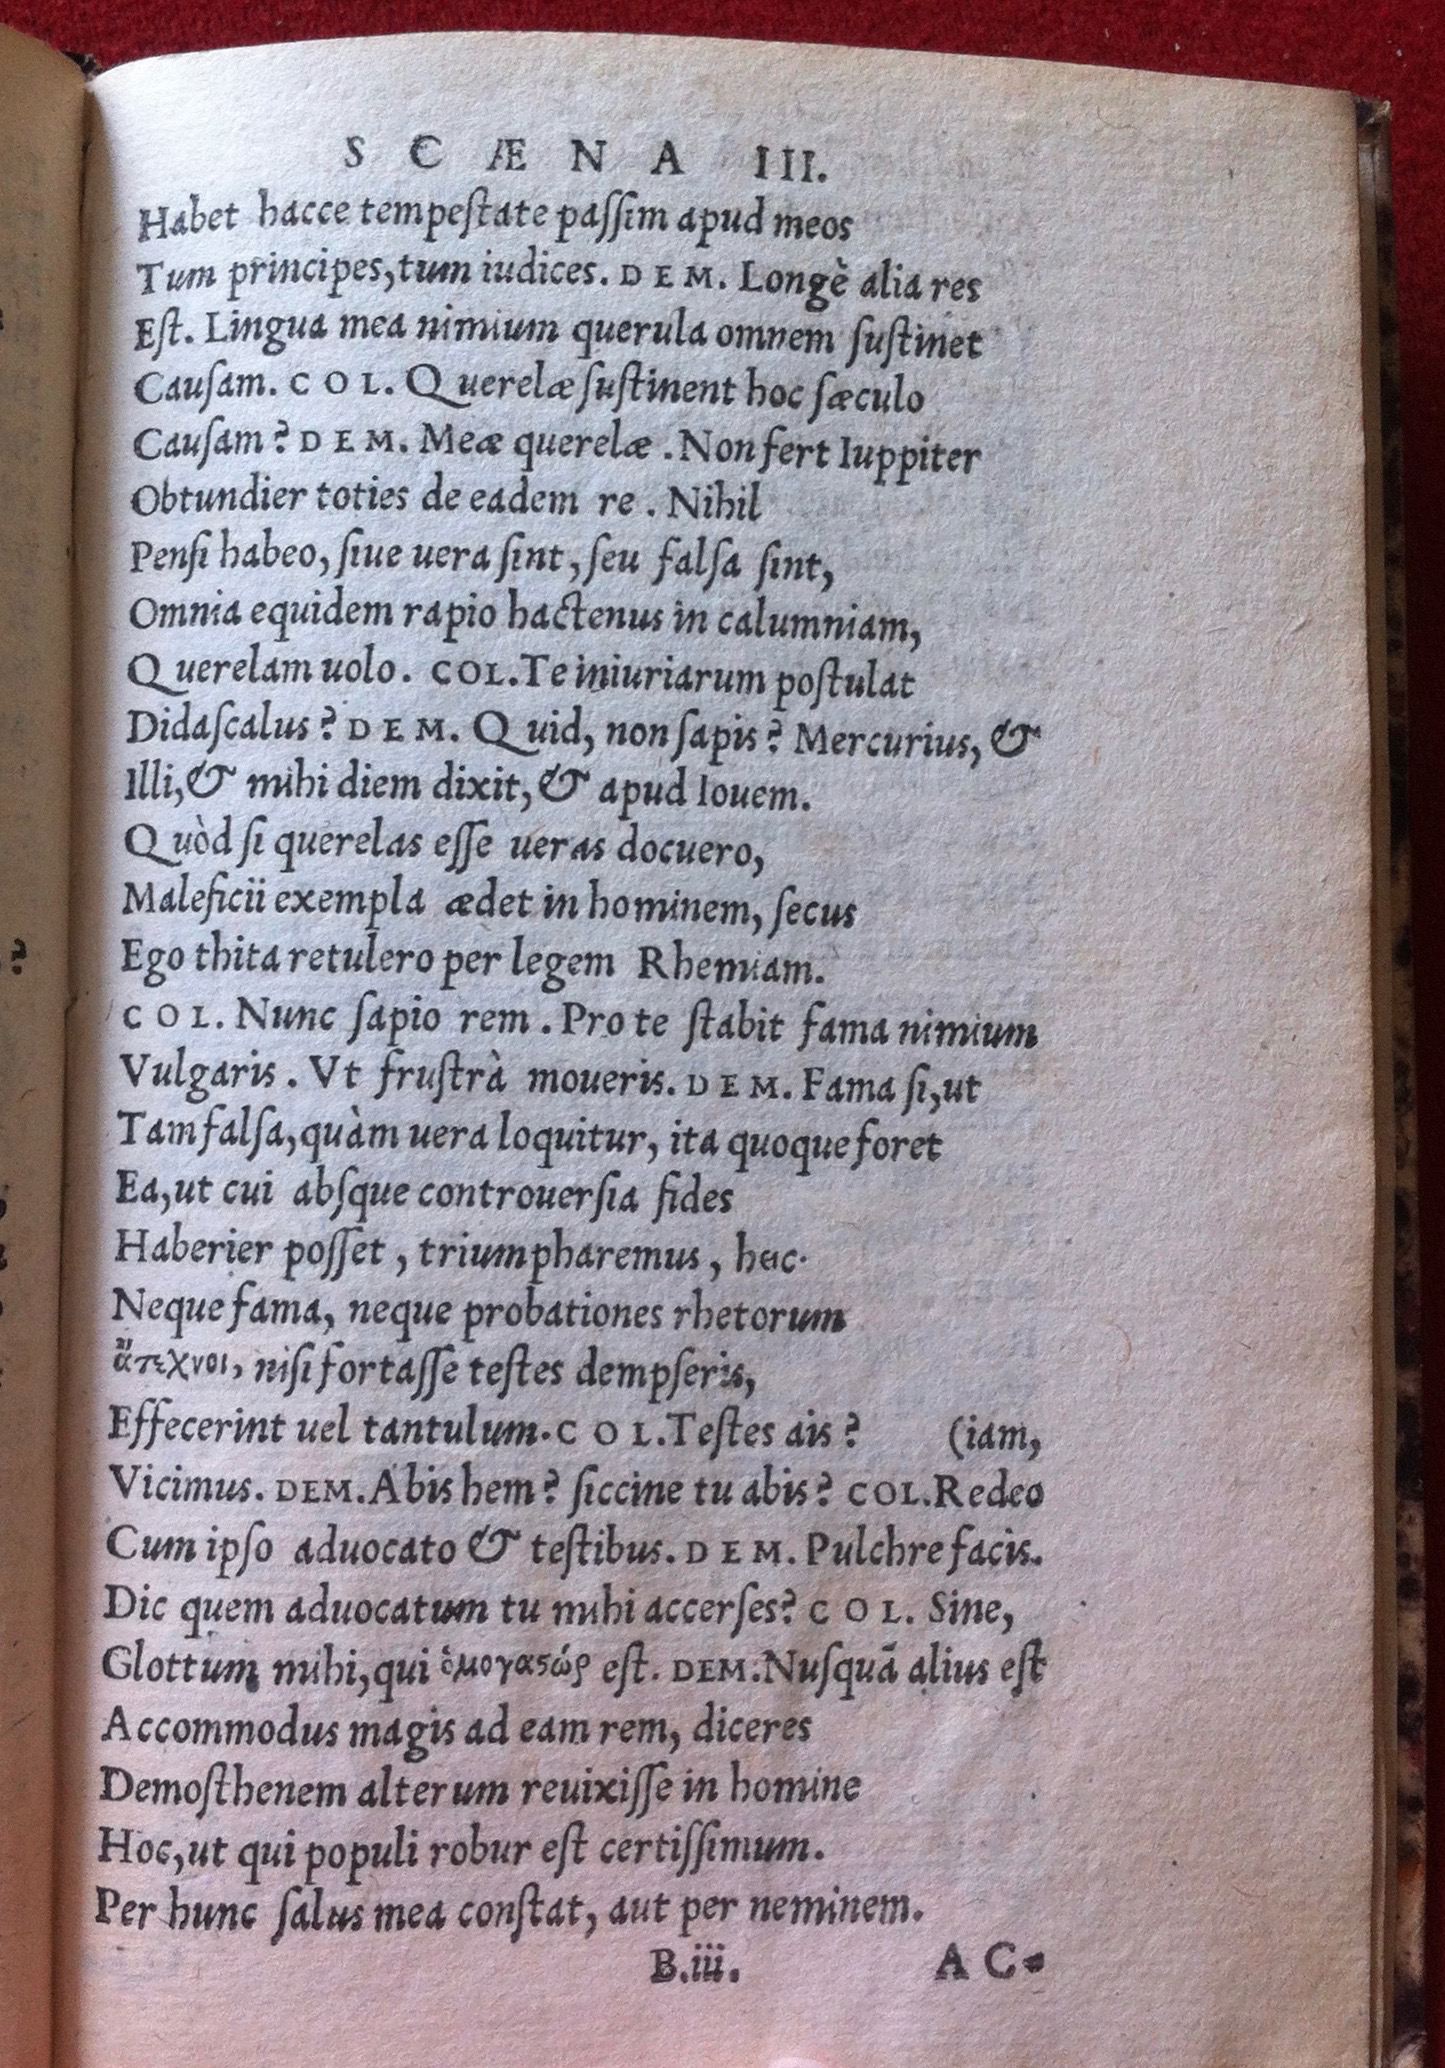 SCÆNA III.
Habet hacce tempeſtate paſſim apud meos
Tum principes, tum iudices. DEM. Longè alia res
Eſt. Lingua mea nimium querula omnem ſuſtinet
Cauſam. COL. Querelæ ſuſtinent hoc ſæculo
Cauſam? DEM. Meæ querelæ. Non fert Iuppiter
Obtundier toties de eadem re. Nihil
Penſi habeo, ſiue uera ſint, ſeu falſa ſint,
Omnia equidem rapio hactenus in calumniam,
Querelam uolo. COL. Te iniuriarum poſtulat
Didaſcalus? DEM. Quid, non ſapis? Mercurius, &
Illi, & mihi diem dixit, & apud Iouem.
Quòd ſi querelas eſſe ueras docuero,
Maleficii exempla ædet in hominem, ſecus
Ego thita retulero per legem Rhemiam.
COL. Nunc ſapio rem. Pro te ſtabit fama nimium
Vulgaris. Vt fruſtrà moueris. DEM. Fama ſi, ut
Tam falſa, quàm uera loquitur, ita quoque foret
Ea, ut cui abſque controuerſia fides
Haberier poſſet, triumpharemus, hac.
Neque fama, neque probationes rhetorum
ἄτεχνοι, niſi fortaſſe teſtes dempſeris,
Effecerint uel tantulum. COL. Teſtes ais? (iam,
Vicimus. DEM. Abis hem? ſiccine tu abis? COL. Redeo
Cum ipſo aduocato & teſtibus. DEM. Pulchre facis.
Dic quem aduocatum tu mihi accerſes? COL. Sine,
Glottum mihi, qui ὁμογαςώρ eſt. DEM. Nuſquã alius eſt
Accommodus magis ad eam rem, diceres
Demoſthenem alterum reuixiſſe in homine
Hoc, ut qui populi robur eſt certiſſimum.
Per hunc ſalus mea conſtat, aut per neminem.
B.iii. AC-